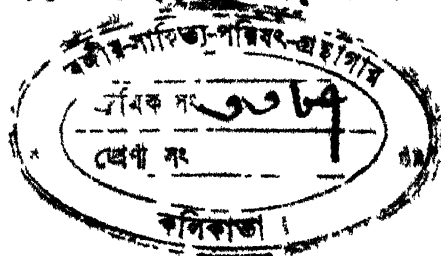 বঙ্গীয়-সাহিত্য-পরিষৎ-গ্রন্থাগার
ক্রমিক সং ৩৩৮৭
শ্রেণী সং
কলিকাতা ।